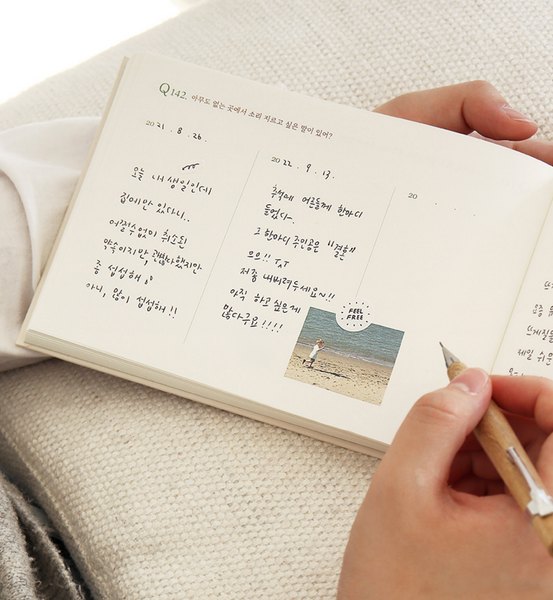 Q142. 아무도 없는 곳에서 소리 지르고 싶은 말이 있어?
2021. 8. 26.
오늘 내 생일인데
집에만 있다니..
어쩔수없이 취소된
약속이지만, 괜찮다했지만
좀 섭섭해
아니, 많이 섭섭해!!
2022. 9. 13.
추석에 어른들께 한마디
들었다.
그 한마디 주인공은 "결혼"
으으!! TxT
저좀 내버려두세요~!!
아직 하고 싶은게
많다구요!!!!
FEEL
FREE
20 . . .
요즘
쓰게질을
제일 쉬운